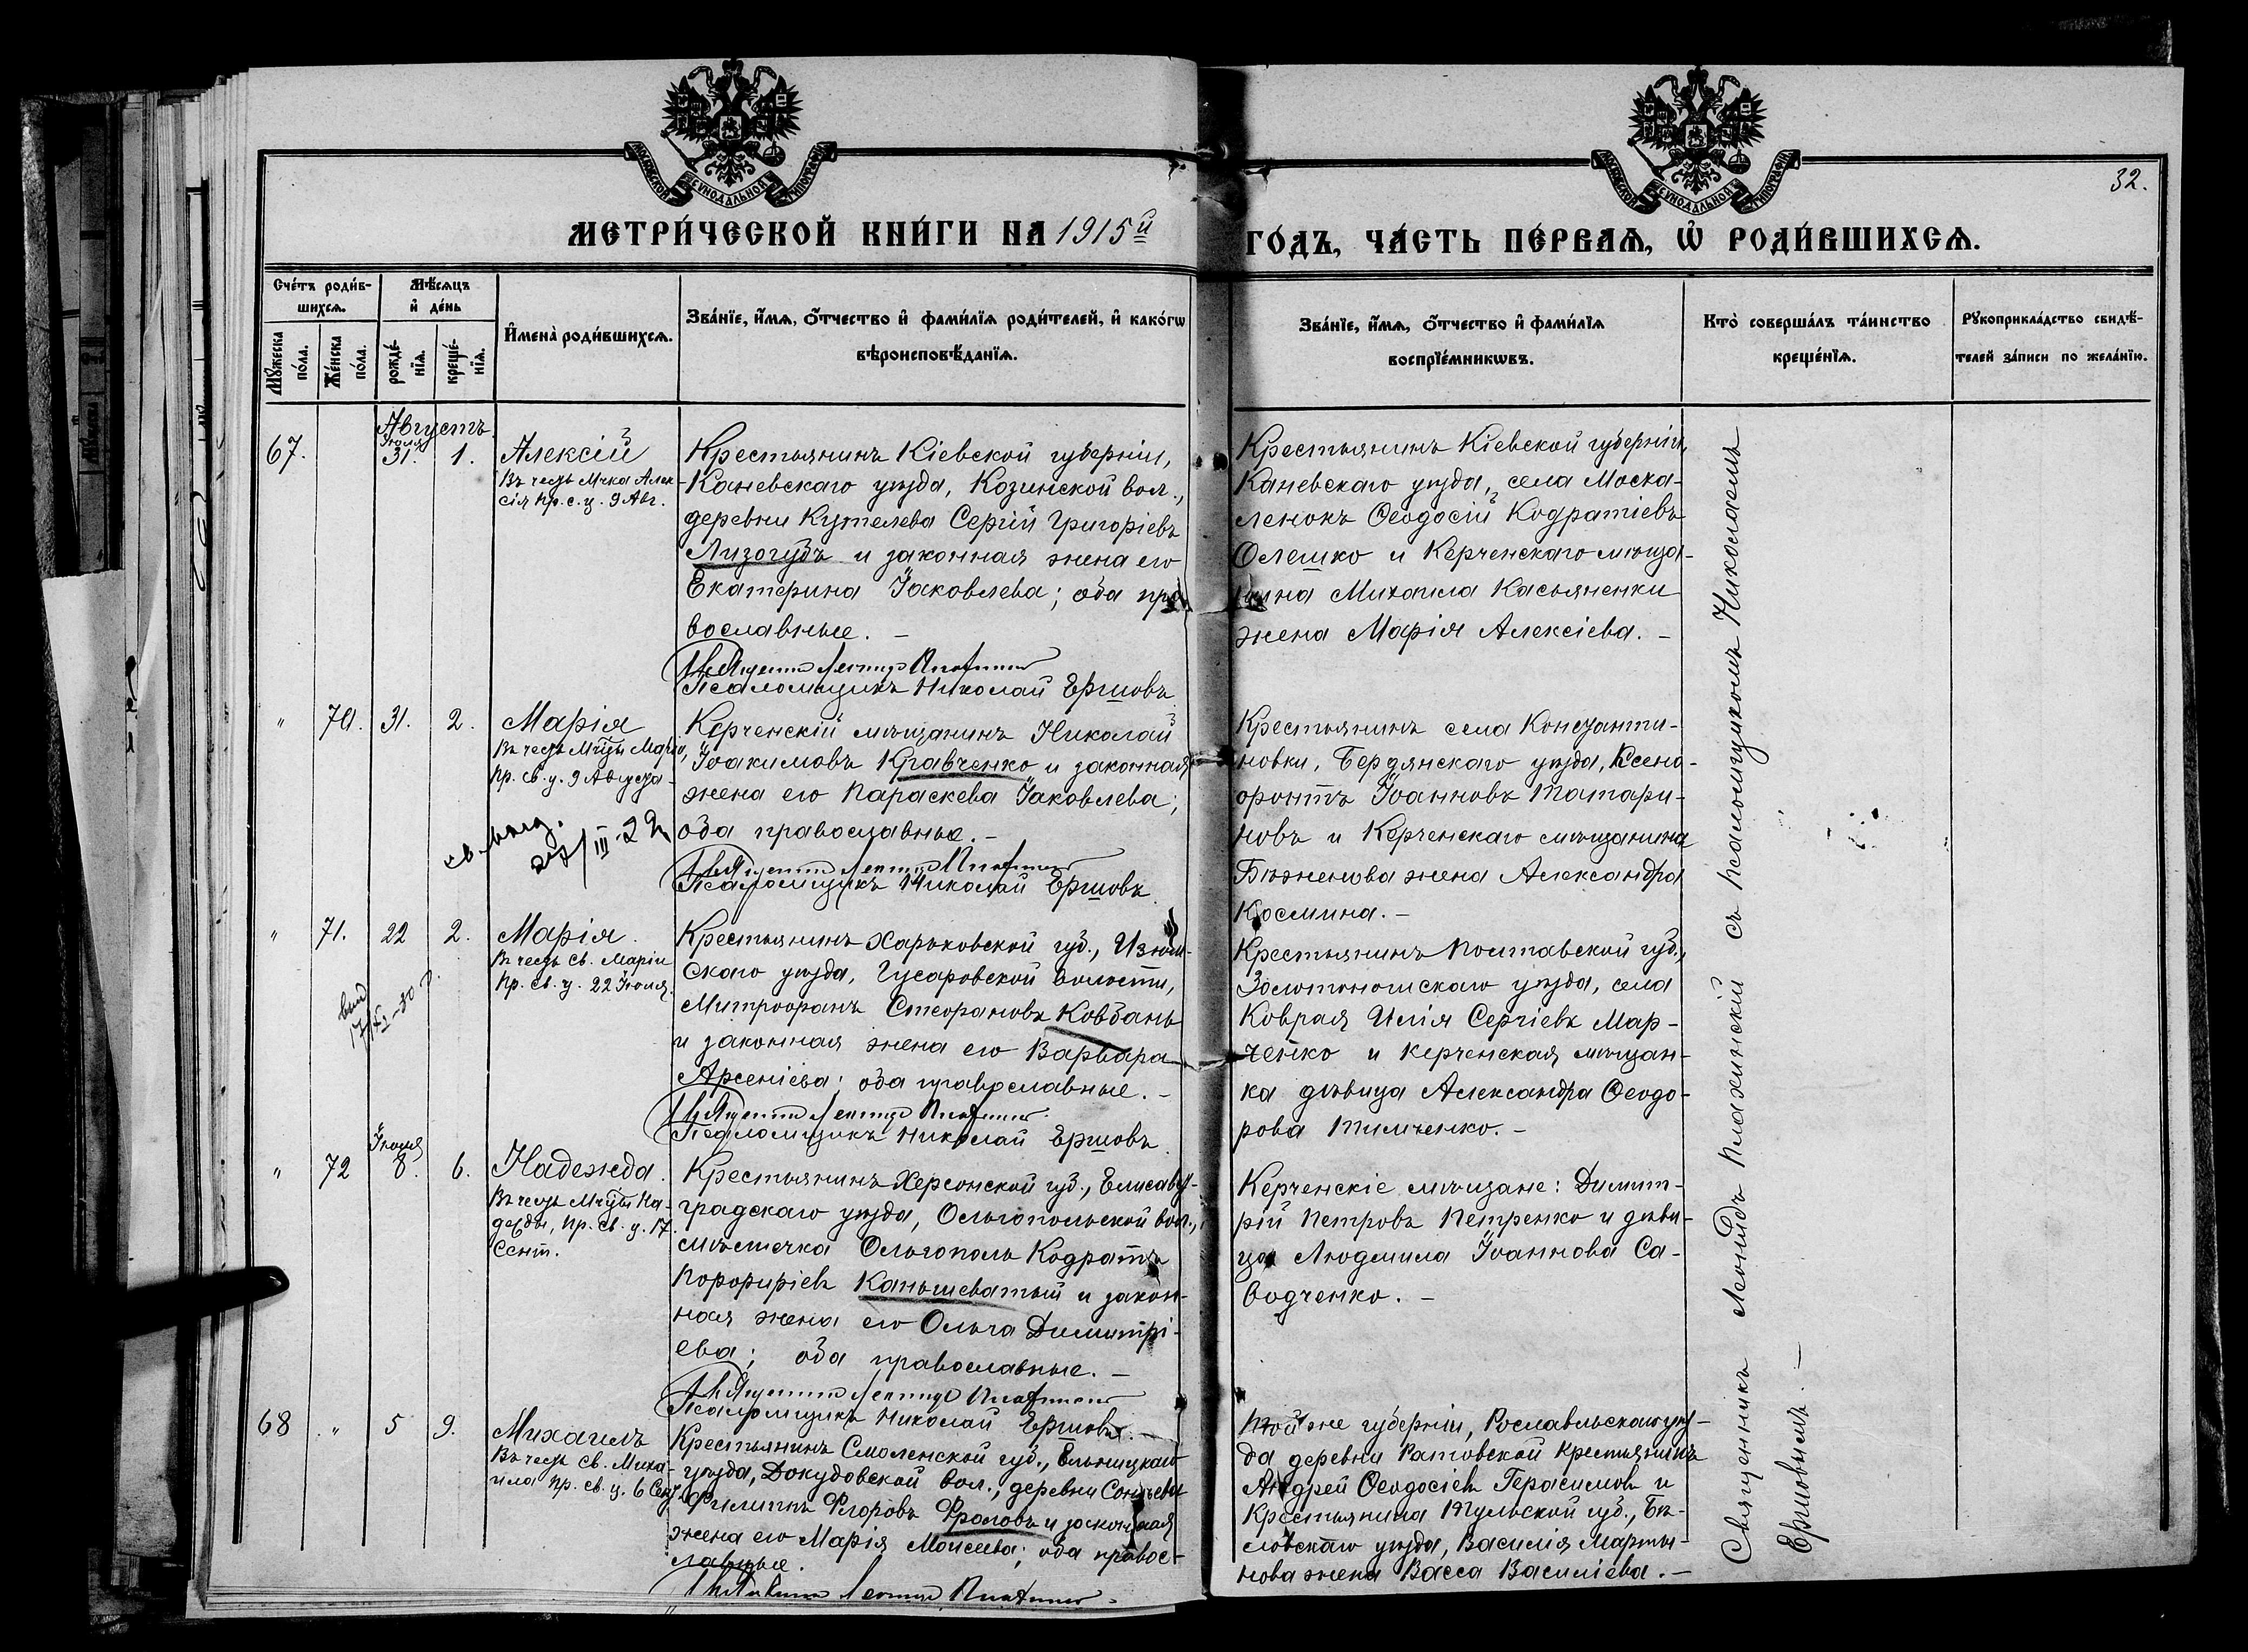 МОСКОВСКОЙ СѴНОДАЛЬНОЙ ТИПОГРАФІИ
МОСКОВСКОЙ СѴНОДАЛЬНОЙ ТИПОГРАФІИ
32.
МЕТРИ́ЧЕСКОЙ КНИ́ГИ НА 1915й
ГО́ДЪ, ЧА́СТЬ ПЕ́РВАѦ, Ѡ҆ РОДИ́ВШИХСѦ.
Сче́тъ роди́в-
шихсѧ.
Мѣ́сѧцъ
и҆ де́нь
Мꙋ́жеска по́ла.
Же́нска по́ла.
рожде́-
нїѧ.
креще́-
нїѧ.
И҆мена̀ роди́вшихсѧ.
Зва́нїе, и҆́мѧ, ѻ҆́тчество и҆ фами́лїѧ роди́телей, и҆ како́гѡ
вѣроисповѣ́данїѧ.
Зва́нїе, и҆́мѧ, ѻ҆́тчество и҆ фами́лїѧ
воспрїе́мникѡвъ.
Кто̀ соверша́лъ та́инство
креще́нїѧ.
Рꙋкоприкла́дство свидѣ́-
телей за́писи по жела́нїю.
Августъ
67.
Іюля
31.
1.
Алексій
Въ честь Мчка Алек-
сія пр. с. ц. 9 Авг.
Крестьянинъ Кіевской губерніи,
Каневскаго уѣзда, Козинской вол.,
деревни Кутелева Сергій Григоріевъ
Лизогубъ и законная жена его
Екатерина Іаковлева; оба пра
вославные. —
Священникъ Леонидъ Плахинскій
Псаломщикъ Николай Ершовъ
Крестьянинъ Кіевской губерніи,
Каневскаго уѣзда, села Моска-
ленокъ Ѳеодосій Кодратіевъ
Олешко и Керченскаго мѣща-
нина Михаила Касьяненки
жена Марія Алексіева. —
" 70. 31. 2.
Марія
Въ честь Мцы Маріи,
пр. св. ц. 9 Августа
Керченскій мѣщанинъ Николай
Іоакимовъ Кравченко и законная
жена его Параскева Іаковлева;
оба православные. —
Священникъ Леонидъ Плахинскій
Псаломщикъ Николай Ершовъ.
Крестьянинъ села Константи-
новки, Бердянскаго уѣзда, Ксено-
фонтъ Іоанновъ Татари-
новъ и Керченскаго мѣщанина
Бѣженова жена Александра
Космина. —
" 71. 22 2.
Марія.
Въ честь св. Маріи
пр. св. ц. 22 Іюля.
Крестьянинъ Харьковской губ., Изюм-
скаго уѣзда, Гусаровской волости,
Митрофанъ Стефановъ Ковбань
и законная жена его Варвара
Арсеніева; оба православные. —
Священникъ Леонидъ Плахинскій
Псаломщикъ Николай Ершовъ
Крестьянинъ Полтавской губ.,
Золотоношскаго уѣзда, села
Коврая Илія Сергіевъ Мар-
ченко и керченская мѣщан-
ка дѣвица Александра Ѳеодо-
рова Тимченко. —
" 72
Іюля
8. 6.
Надежда.
Въ честь Мчцы На-
дежды, пр. св. ц. 17
Сент.
Крестьянинъ Херсонской губ., Елисавет-
градскаго уѣзда, Ольгопольской вол.,
мѣстечка Ольгополь Кодратъ
Порфиріевъ Канышеватый и закон-
ная жена его Ольга Димитрі-
ева; оба православные. —
Священникъ Леонидъ Плахинскій
Псаломщикъ Николай Ершовъ. —
Керченскіе мѣщане: Димит-
рій Петровъ Петренко и дѣви-
ца Людмила Іоаннова Са-
водченко. —
68 " 5 9.
Михаилъ
Въ честь св. Миха-
ила пр. св. ц. 6 Сент.
Крестьянинъ Смоленской губ., Ельницкаго
уѣзда, Докудовской вол., деревни
Филиппъ Ѳедоровъ Фроловъ и законная
жена его Марія Моисеева; оба правос-
лавные.
Священникъ Леонидъ Плахинскій
Той же губерніи, Рославльскаго уѣз-
да деревни Ратовской крестьянинъ
Андрей Ѳеодосіевъ Герасимовъ и
Крестьянина Тульской губ., Бѣ-
левскаго уѣзда, Василія Марты-
нова жена Васса Василіева. —
Священникъ Леонидъ Плахинскій съ псаломщикомъ Николаемъ
Ершовымъ. —